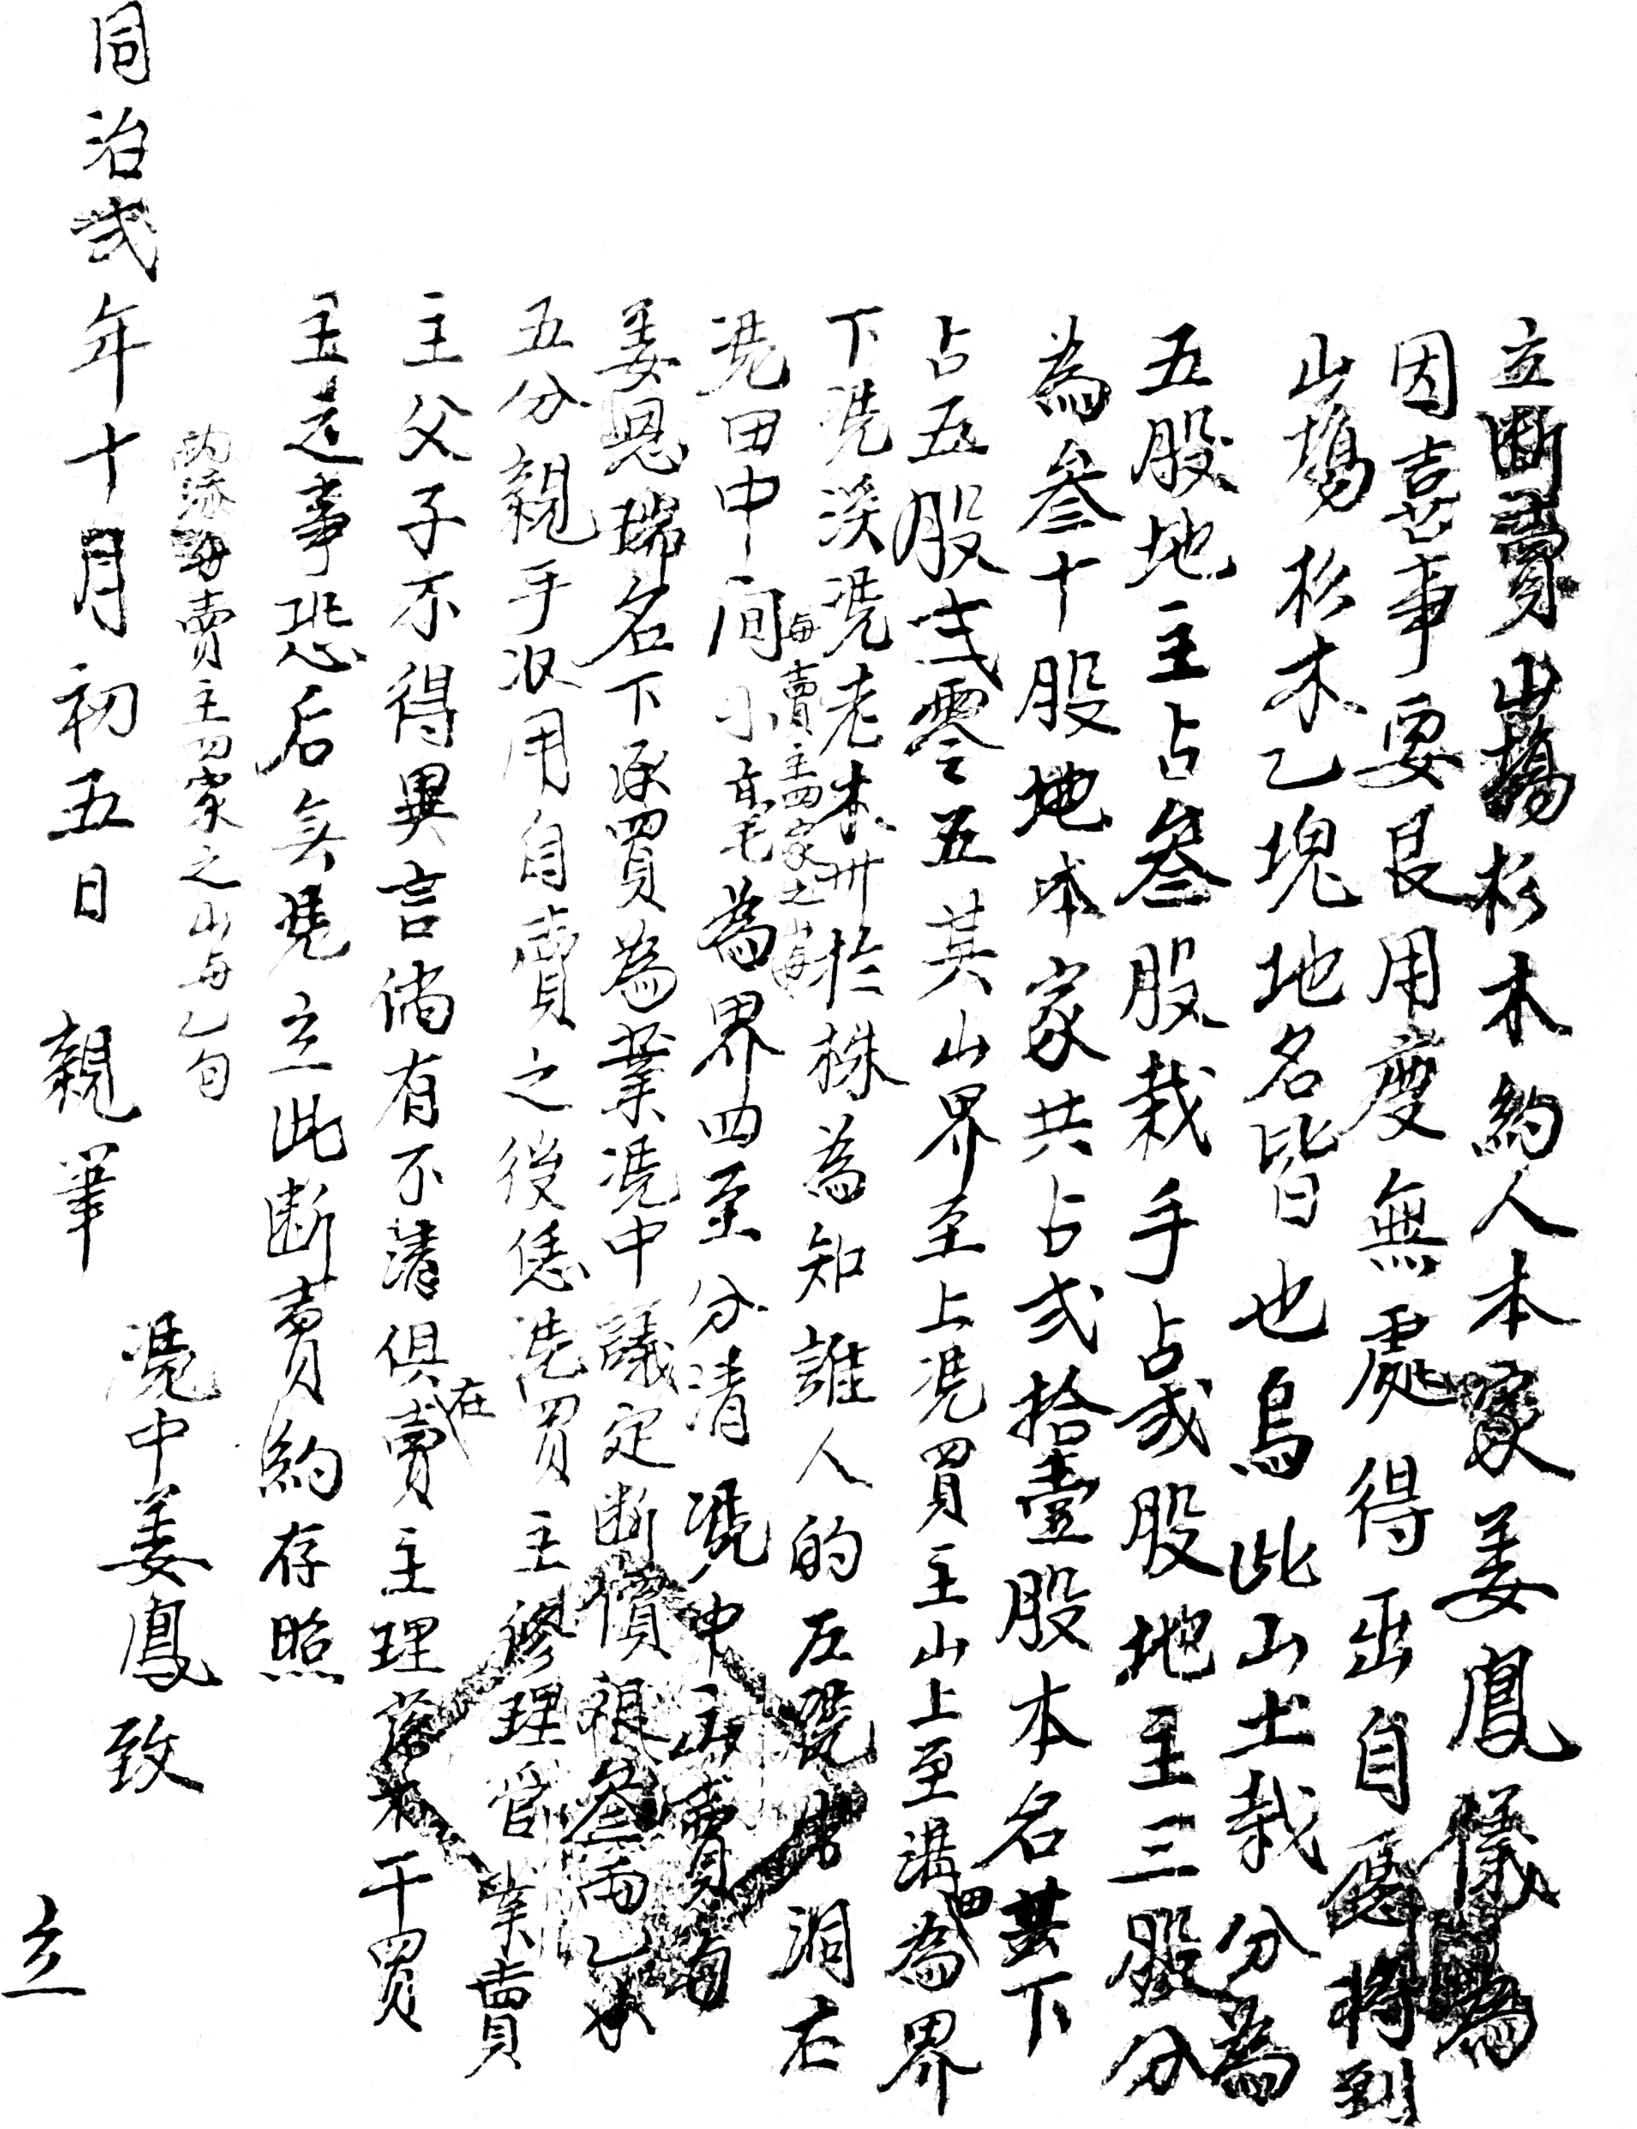 立斷賣山塲杉木約人本家姜鳳儀為
因喜事要艮用度無處得出自愿將到
山塲杉木乙塊地名皆也鳥此山土栽分為
五股地主占叁股栽手占貳股地主三股分
為叁十股地本家共占貳拾壹股本名其下
占五股弍零五其山界至上凴買主山上至溝田為界
下凴溪凴老木卅扵株為知誰人的左凴洞右
每賣主四家之山每
凴田中间小毫毛為界四至分清凴中山賣與
姜恩瑞名下承買為業凴中議定断價銀叁両
五分親手収用自賣之後恁凴買主修理管業賣
主父子不得異言倘有不清俱在賣主理落不干買
主之事恐后無凴立此断賣約存照
内添每賣主四家之山每乙旬
凴中姜鳳致
同治弍年十月初五日 親筆 立